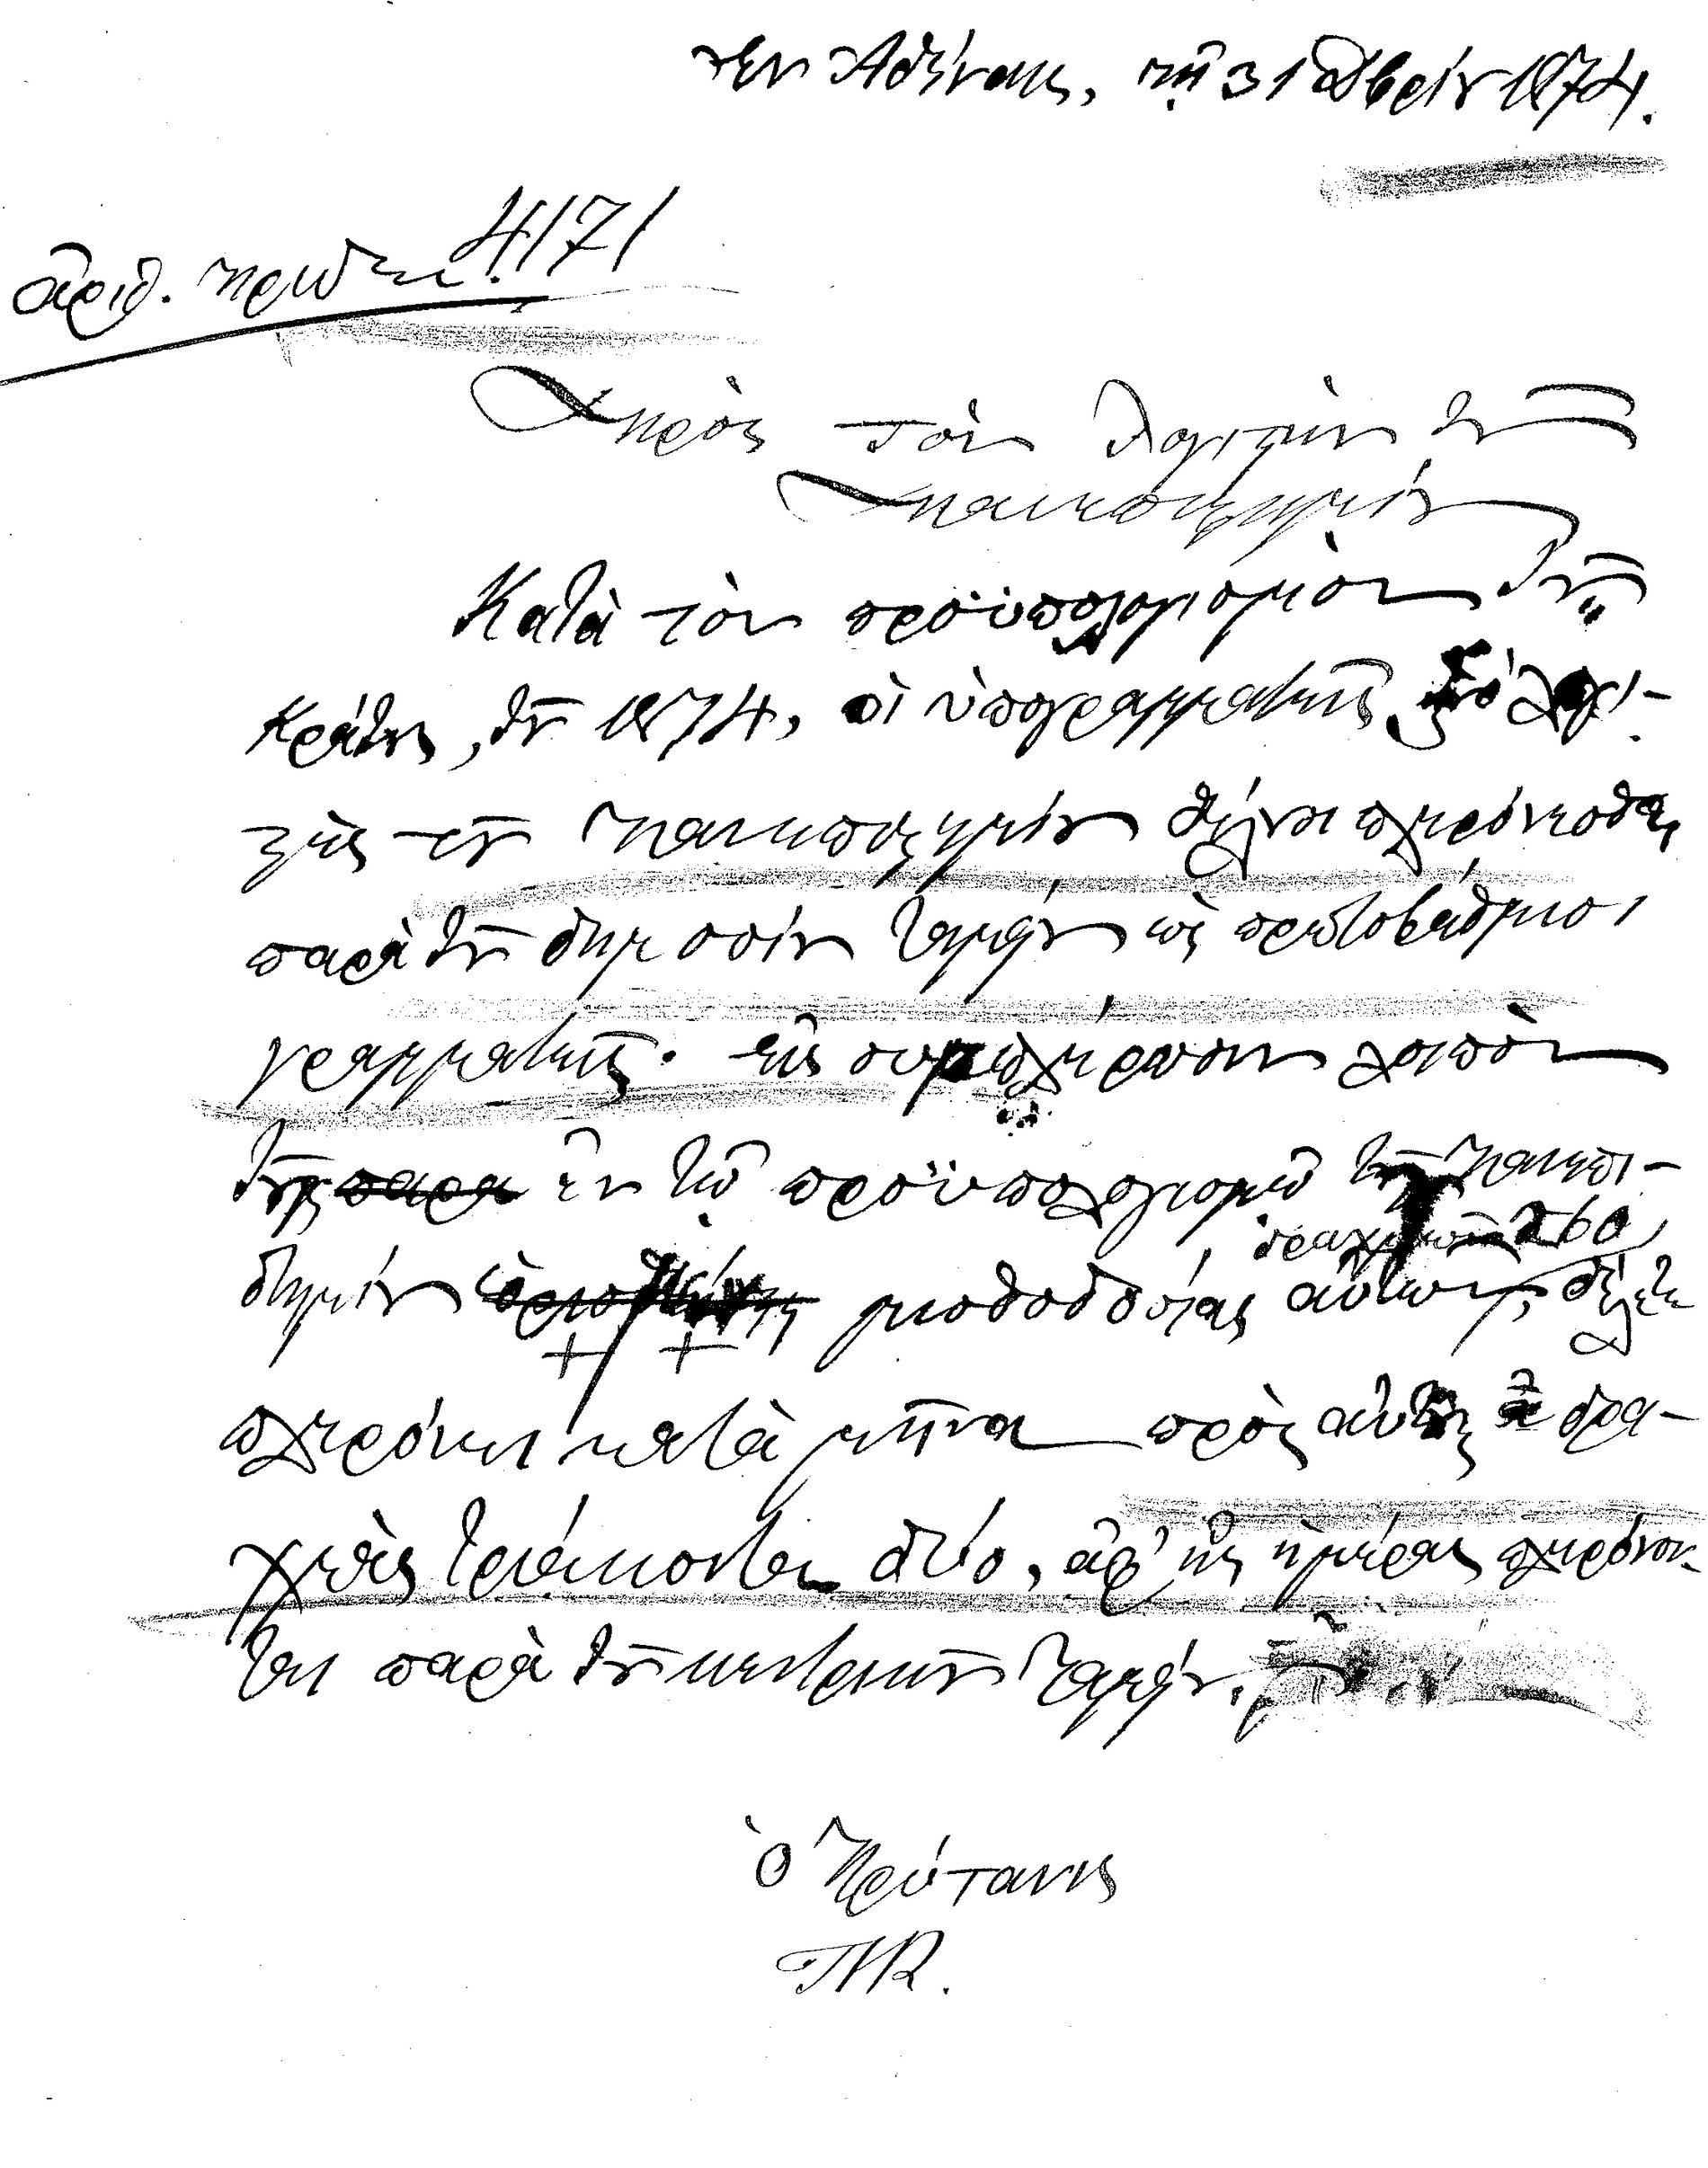 Ἐν Ἀθήναις, τῇ 31 1874.
ἀριθ. πρωτ. 4171
Πρὸς τὸν λογιστὴν τοῦ
Πανεπιστημίου
Κατὰ τὸν προϋπολογισμὸν τοῦ
Κράτους, τοῦ 1874, οἱ ὑπογραμματεῖς
τοῦ Πανεπιστημίου θέλουσι πληρόνεσθαι
παρὰ τοῦ δημοσίου ταμείου ὡς πρωτοβάθμιοι
γραμματεῖς. εἰς συμπλήρωσιν λοιπὸν
τῆς παρα ἐν τῷ προϋπολογισμῷ τοῦ Πανεπι-
δραχμῶν 160
στημίου ὁρισθείσης μισθοδοσίας αὐτῶν, θέλετε
πληρόνει κατὰ μῆνα πρὸς αὐτοὺς δρα-
χμὰς τριάκοντα δύο, ἀφ' ἧς ἡμέρας πληρόνον-
ται παρὰ τοῦ κεντρικοῦ ταμείου.
ὁ Πρύτανις